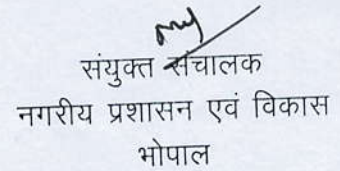 संयुक्त संचालक
नगरीय प्रशासन एवं विकास
भोपाल